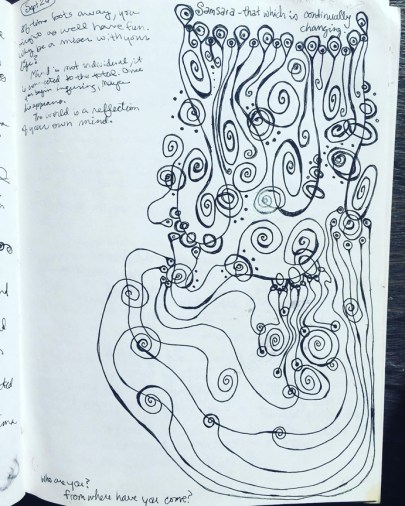 Sept 20
away, you
might as well have fun.
why be a miser with your
life?
Mind is not individual, it
is connected to the whole. Once
you begin inquiring, Maya
disappears.
The world is a reflection
of your own mind.
Samsara - that which is continually
changing.
who are you?
from where have you come?